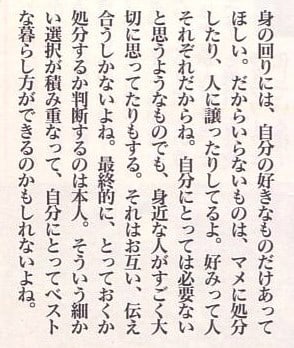 身の回りには、自分の好きなものだけあって
ほしい。だからいらないものは、マメに処分
したり、人に譲ったりしてるよ。好みって人
それぞれだからね。自分にとっては必要ない
と思うようなものでも、身近な人がすごく大
切に思ってたりもする。それはお互い、伝え
合うしかないよね。最終的に、とっておくか
処分するか判断するのは本人。そういう細か
い選択が積み重なって、自分にとってベスト
な暮らし方ができるのかもしれないよね。